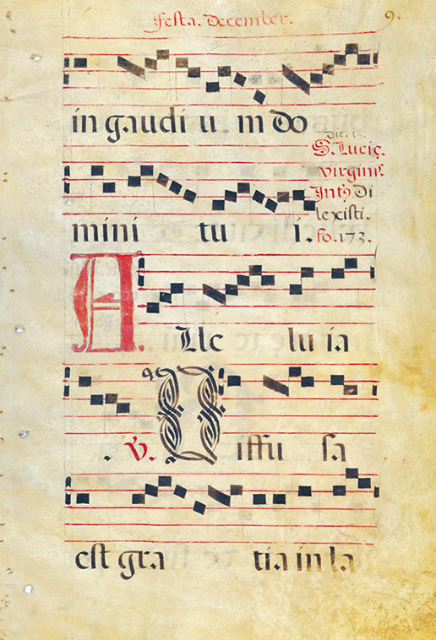 Festa. December. 9.
in gaudi u m do
die. 13.
S. Lucię.
virginis.
Intꝫ Di
lexisti.
fo. 173.
mini tu i.
Alle lu ia
℣. Diffu sa
est gra tia in la